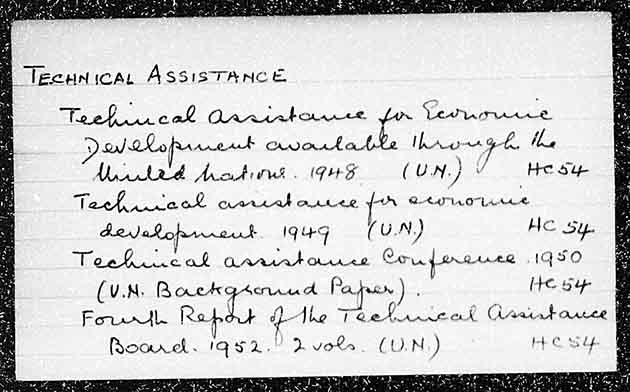 TECHNICAL ASSISTANCE
Technical assistance for Economic
Development available through the
United Nations. 1948 (U.N.) HC54
Technical assistance for economic
development. 1949 (U.N.) HC54
Technical assistance Conference. 1950
(U.N. Background Paper). HC54
Fourth Report of the Technical Assistance
Board. 1952. 2 vols. (U.N.) HC54